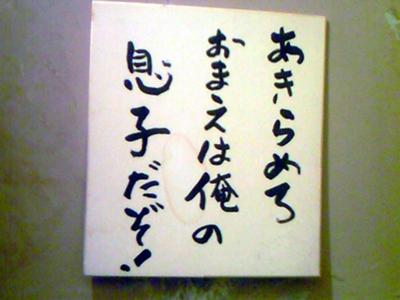 あきらめろ
おまえは俺の
息子だぞ!